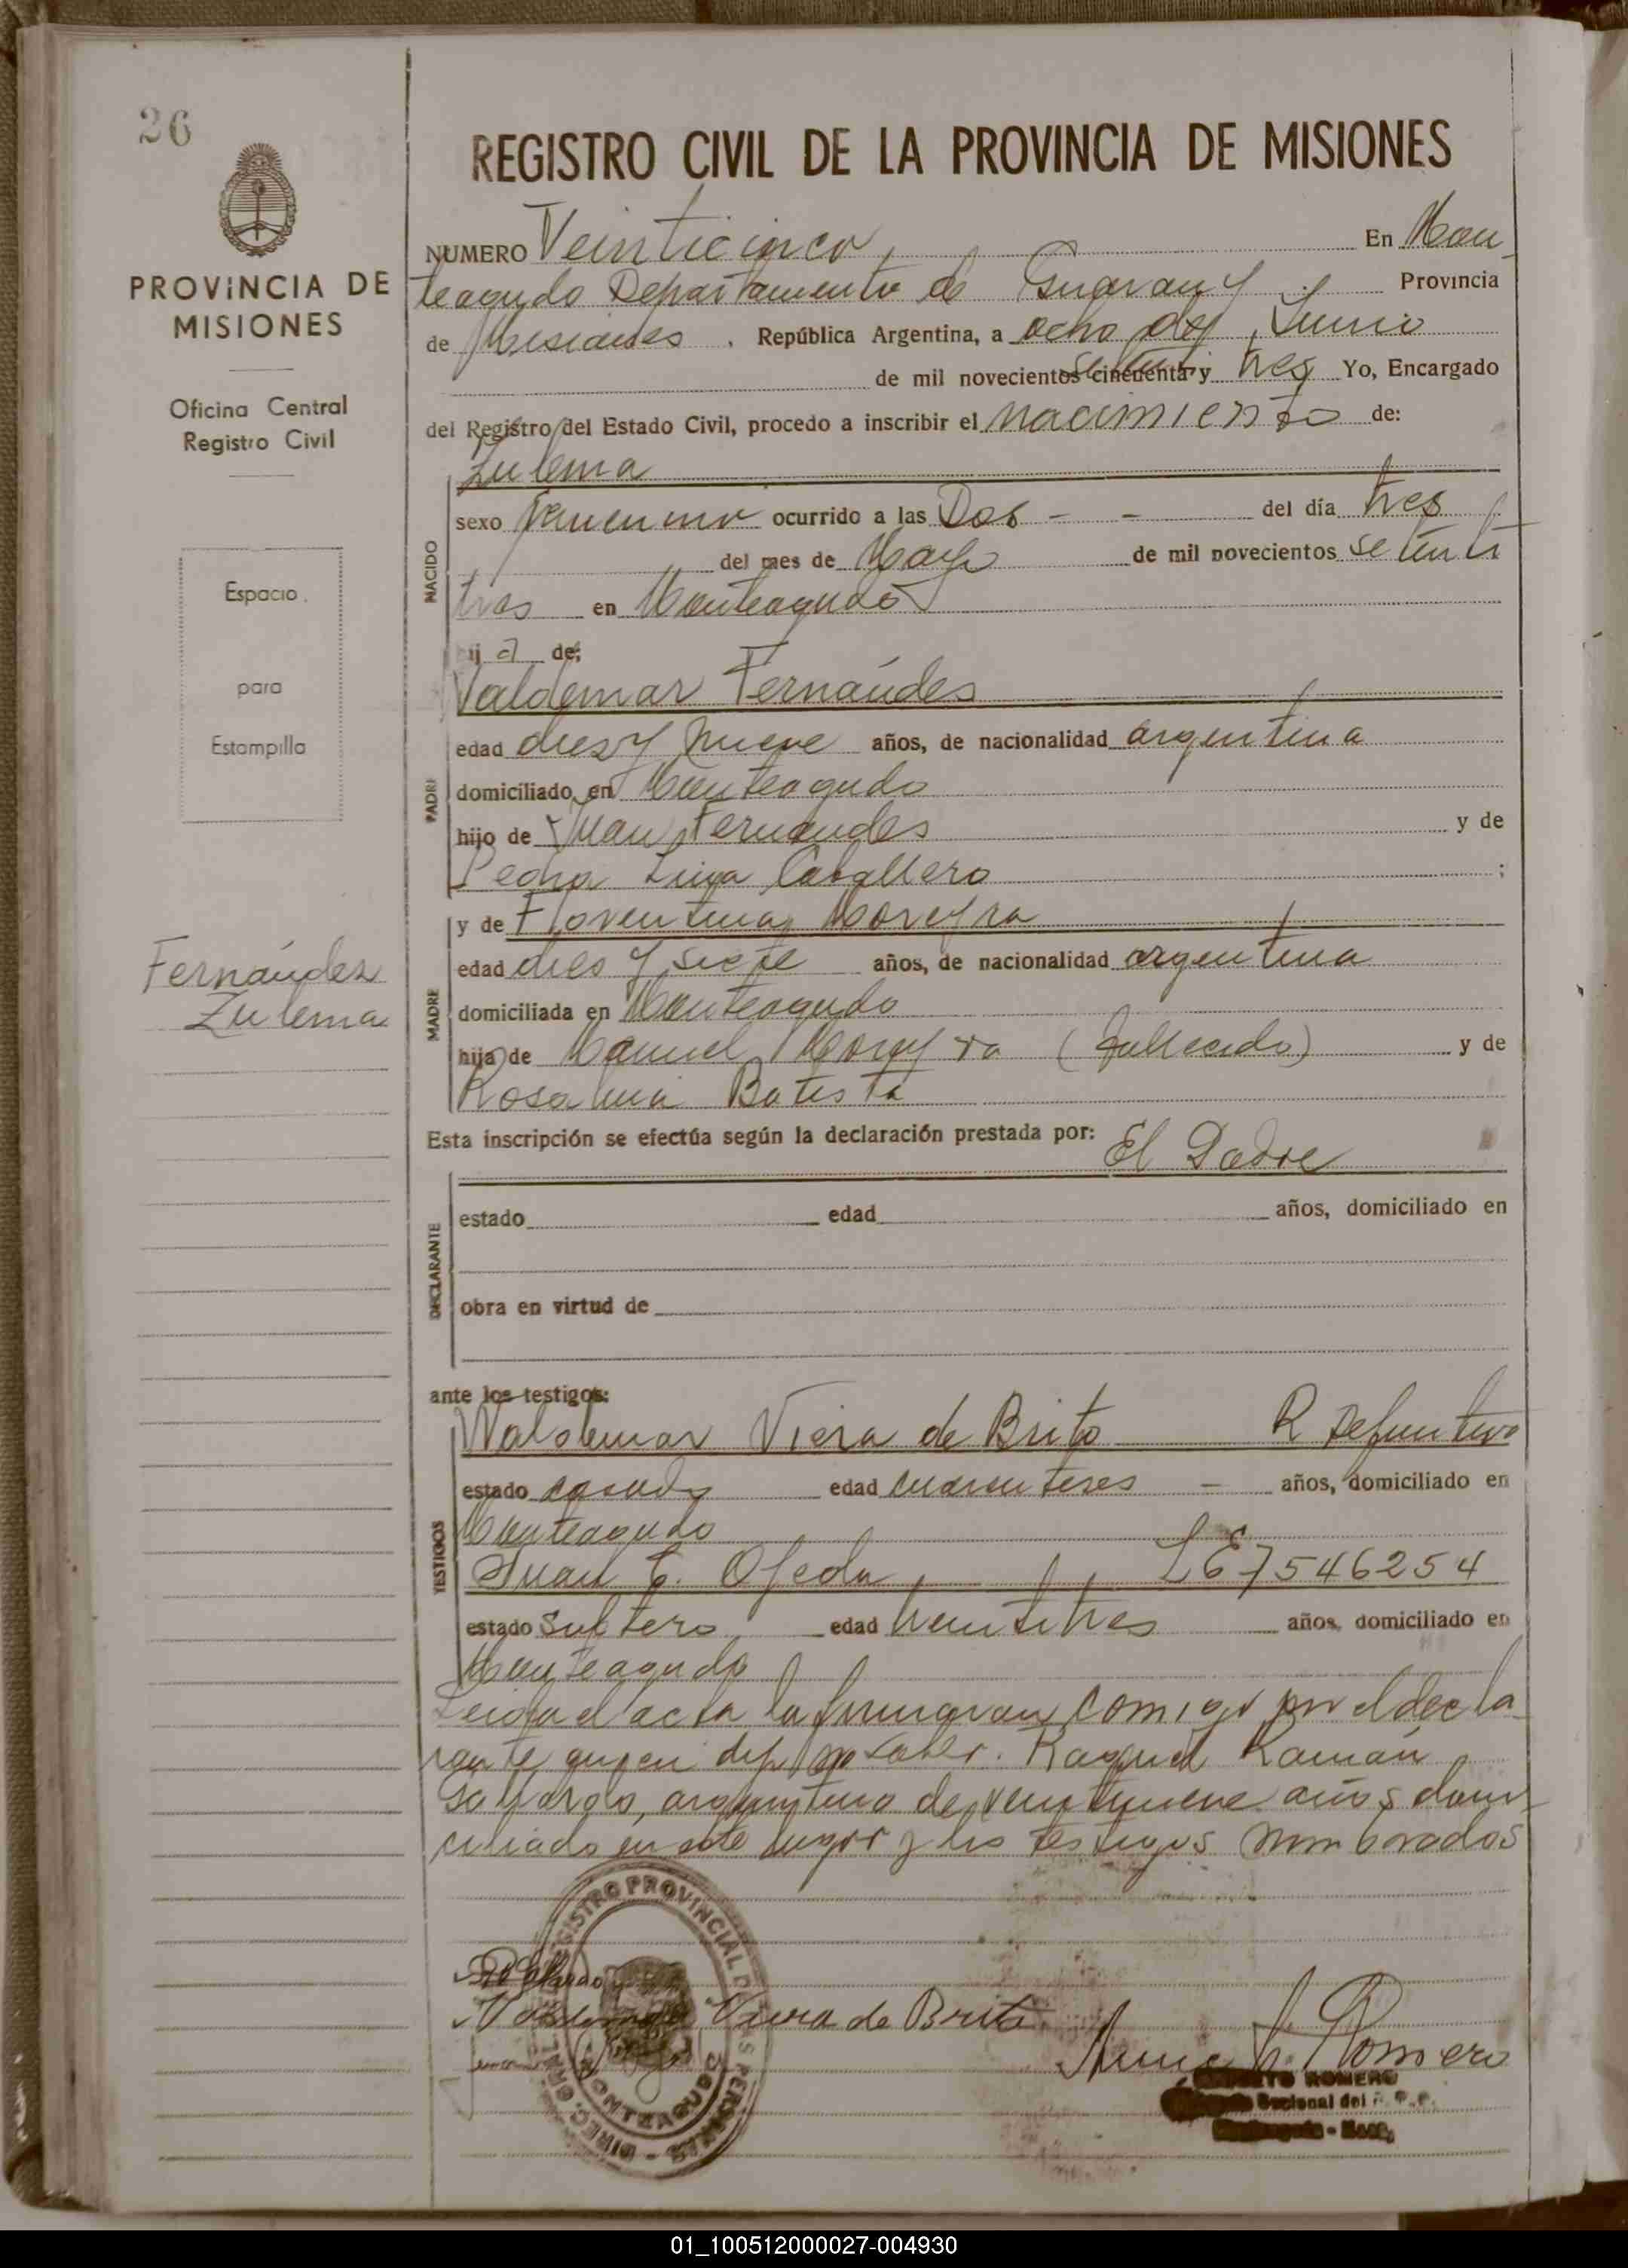 26
PROVINCIA DE
MISIONES
Oficina Central
Registro Civil
Espacio
para
Estampilla
Fernández
Zulema
REGISTRO CIVIL DE LA PROVINCIA DE MISIONES
NUMERO Veinticinco En Mon
teagudo Departamento de Guarany Provincia
de Misiones . República Argentina, a ocho de Junio
de mil novecientos cincuenta y setenta tres Yo, Encargado
del Registro del Estado Civil, procedo a inscribir el nacimiento de:
Zulema
NACIDO
sexo Femenino ocurrido a las Dos - - del día tres
del mes de Mayo de mil novecientos setenti
tres en Monteagudo
hij a de:
PADRE
Valdemar Fernándes
edad dies y nueve años, de nacionalidad argentina
domiciliado en Monteagudo
hijo de Juan Fernandes y de
Pedra Caballero ;
MADRE
y de Florentina Moreyra
edad dies y siete años, de nacionalidad argentina
domiciliada en Monteagudo
hija de Manuel Moreyra (fallecido) y de
Rosalina Batista
Esta inscripción se efectúa según la declaración prestada por: El Padre
DECLARANTE
estado edad años, domiciliado en
obra en virtud de
ante los testigos:
TESTIGOS
Waldemar Viera de Brito R Definitivo
estado casado edad cuarentitres - años, domiciliado en
Monteagudo
Juan C. Ojeda LE 7546254
estado Soltero edad veintitres años, domiciliado en
Monteagudo
Leida el acta la firmaran comigo por el decla
rante quien dijo no saber. Raquel Ramón
Gallardo, argentino de veintinueve años domi
ciliado en este lugar y los testigos nombrados
REGISTRO PROVINCIAL DE LAS PERSONAS - DIREC. GRAL.
MONTEAGUDO
Valdemar Vieira de Brito
Romero
ROMERO
Seccional del R. P. P.
01_100512000027-004930